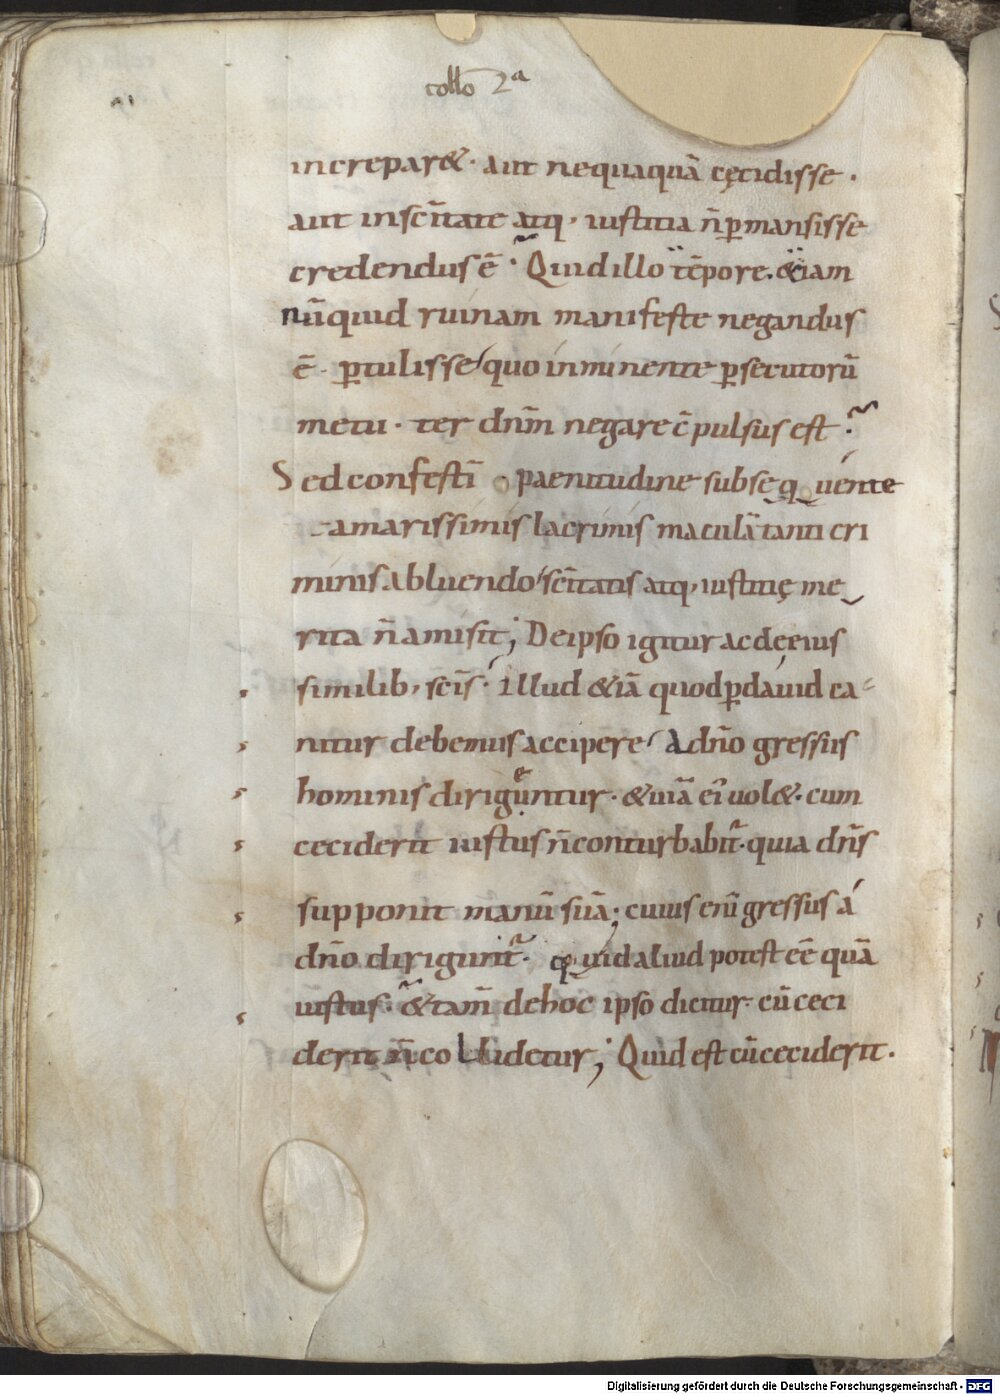 collo 2ª
increpar&. aut nequaquā cęcidisse.
aut inscītate atq; iustitia n̄ p̱mansisse
credendus ē. Quid illo tēpore. &iam
nūquid ruinam manifeste negandus
ē. p̱tulisse quo inminente p̱secutorū
metu. ter dn̄m negare c̄pulsus est.
Sed confestī paenitudine subsequente
amarissimis lacrimis maculā tanti cri
minis abluendo scītatis atq; iustitię me
rita n̄ amisit; De ipso igitur ac de eius
similib; scīs. illud &iā quod p̱ dauid ca
nitur debemus accipere. A dn̄o gressus
hominis diriguntur. & uiā eī uol&. cum
ceciderit iustus n̄ conturbabit̄. quia dn̄s
supponit manū suā; cuius enī gressus á
dn̄o dirigunt̄. quid aliud potest eē quā
iustus. & tam̄ de hoc ipso dicitur. cū ceci
derit n̄ collidetur; Quid est cū ceciderit.
Digitalisierung gefördert durch die Deutsche Forschungsgemeinschaft - DFG